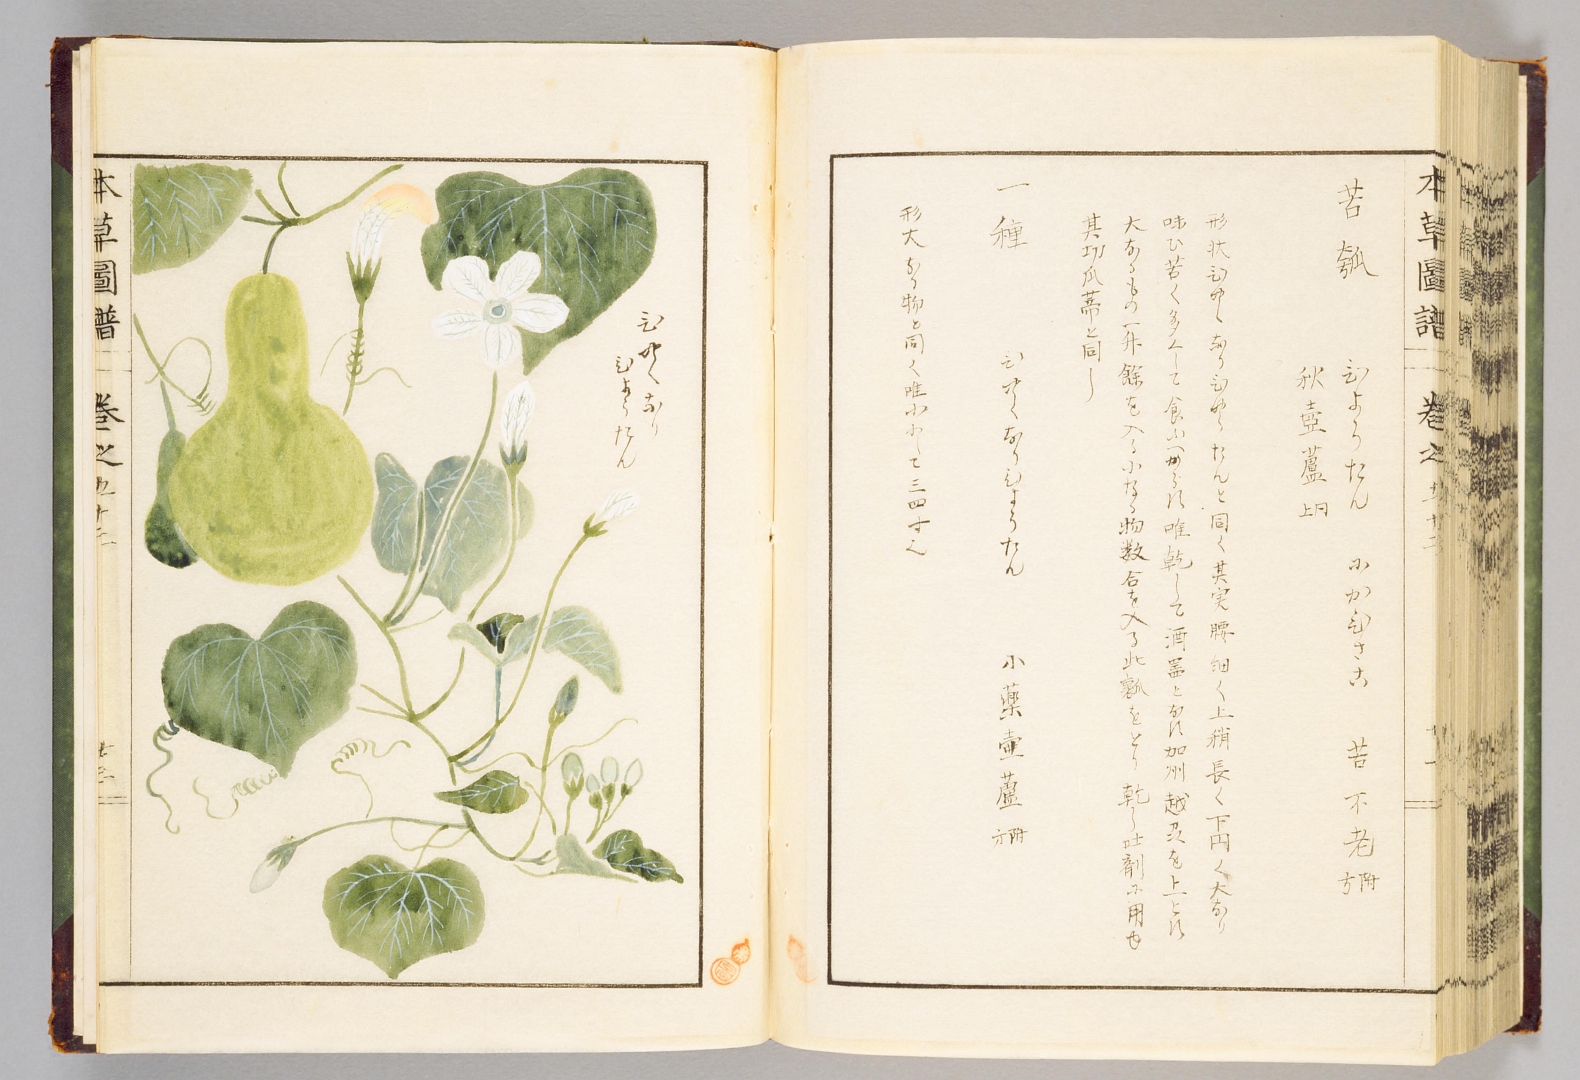 本草圖譜 巻之
苦瓠 ひようたん にがひさこ 苦不老 附方
秋壺蘆 同上
形状ひやくなりひやうたんと同く其実腰細く上稍長く下円く大なり
味ひ苦く多くして食ふべからず唯乾して酒器となす加州越及を上とす
大なるもの一升餘を入る小なる物数合を入る此瓢をとり乾し吐剤に用ゆ
其功瓜蒂と同し
一種 ひやくなりひようたん 小薬壺蘆 附方
形大なる物と同く唯小にして三四寸
ひやくなり
ひようたん
本草圖譜 巻之